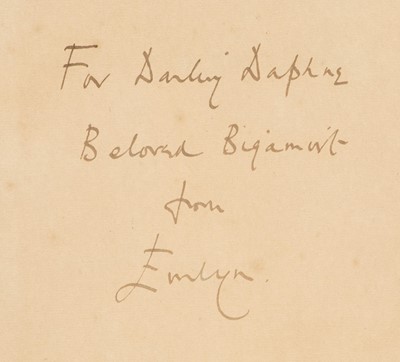 For Darling Daphne
Beloved Bigamist
from
Evelyn.